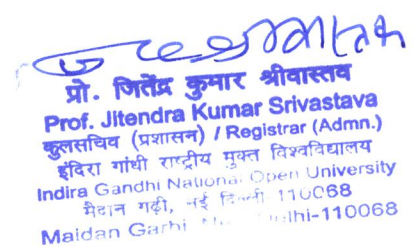 प्रो. जितेंद्र कुमार श्रीवास्तव
Prof. Jitendra Kumar Srivastava
कुलसचिव (प्रशासन) / Registrar (Admn.)
इंदिरा गांधी राष्ट्रीय मुक्त विश्वविद्यालय
Indira Gandhi National Open University
मैदान गढ़ी, नई दिल्ली-110068
Maidan Garhi, Delhi-110068